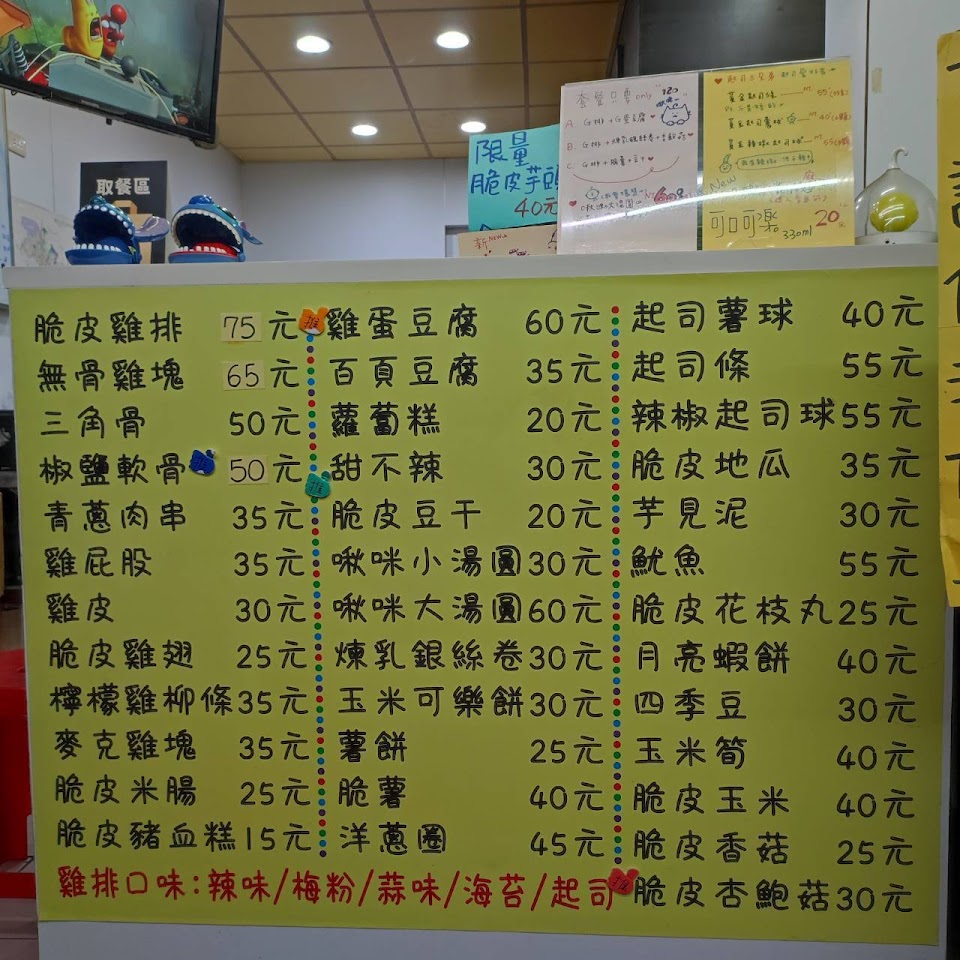 取餐區
限量
脆皮芋頭
40元
套餐只要only 120
新New
New
可口可樂 20元
330ml
脆皮雞排 75元
無骨雞塊 65元
三角骨 50元
椒鹽軟骨 50元
青蔥肉串 35元
雞屁股 35元
雞皮 30元
脆皮雞翅 25元
檸檬雞柳條 35元
麥克雞塊 35元
脆皮米腸 25元
脆皮豬血糕 15元
雞排口味:辣味/梅粉/蒜味/海苔/起司
推
雞蛋豆腐 60元
百頁豆腐 35元
蘿蔔糕 20元
甜不辣 30元
推
脆皮豆干 20元
啾咪小湯圓 30元
啾咪大湯圓 60元
煉乳銀絲卷 30元
玉米可樂餅 30元
薯餅 25元
脆薯 40元
洋蔥圈 45元
起司薯球 40元
起司條 55元
辣椒起司球 55元
脆皮地瓜 35元
芋見泥 30元
魷魚 55元
脆皮花枝丸 25元
月亮蝦餅 40元
四季豆 30元
玉米筍 40元
脆皮玉米 40元
脆皮香菇 25元
推
脆皮杏鮑菇 30元